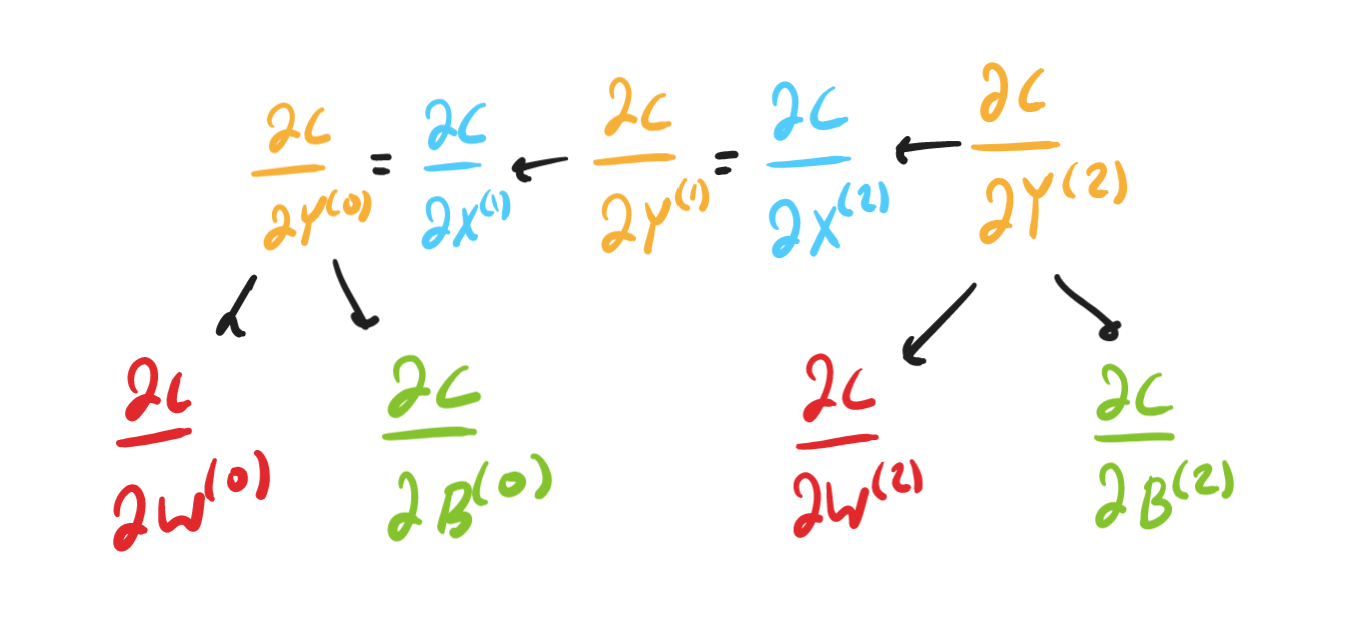 ∂C/∂Y^(0) = ∂C/∂X^(1) ← ∂C/∂Y^(1) = ∂C/∂X^(2) ← ∂C/∂Y^(2)
∂C/∂W^(0) ∂C/∂B^(0) ∂C/∂W^(2) ∂C/∂B^(2)